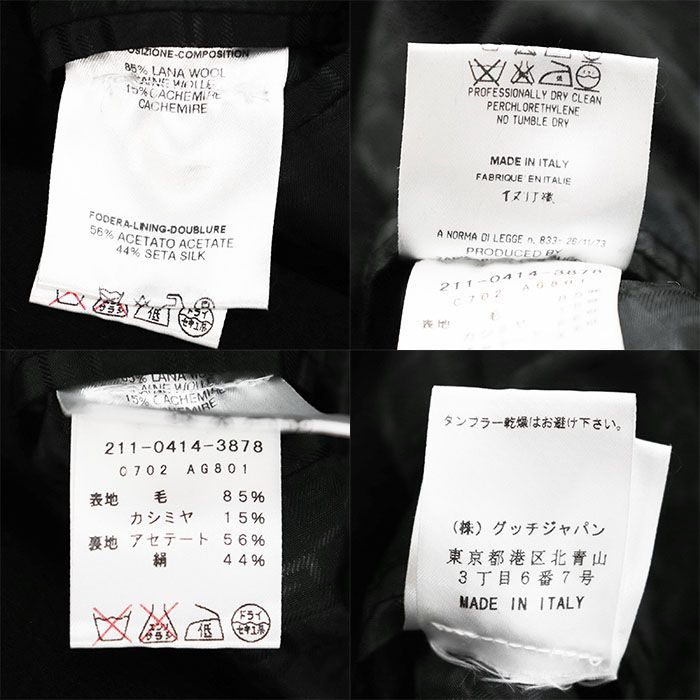 OSIZIONE-COMPOSITION
85% LANA WOOL
LAINE WOLLE
15% CACHEMIRE
CACHEMIRE
FODERA-LINING-DOUBLURE
56% ACETATO ACETATE
44% SETA SILK
エンソ
サラシ
低
ドライ
セキユ系
PROFESSIONALLY DRY CLEAN
PERCHLORETHYLENE
NO TUMBLE DRY
MADE IN ITALY
FABRIQUE EN ITALIE
A NORMA DI LEGGE n. 833- 26/11/73
PRODUCED BY
211-0414-3878
0702 AG801
表地 毛
カシミヤ
85% LANA WOOL
LAINE WOLLE
15% CACHEMIRE
CACHEMIRE
211-0414-3878
0702 AG801
表地 毛 85%
カシミヤ 15%
裏地 アセテート 56%
絹 44%
エンソ
サラシ
低
ドライ
セキユ系
タンブラー乾燥はお避け下さい。
(株) グッチジャパン
東京都港区北青山
3丁目6番7号
MADE IN ITALY